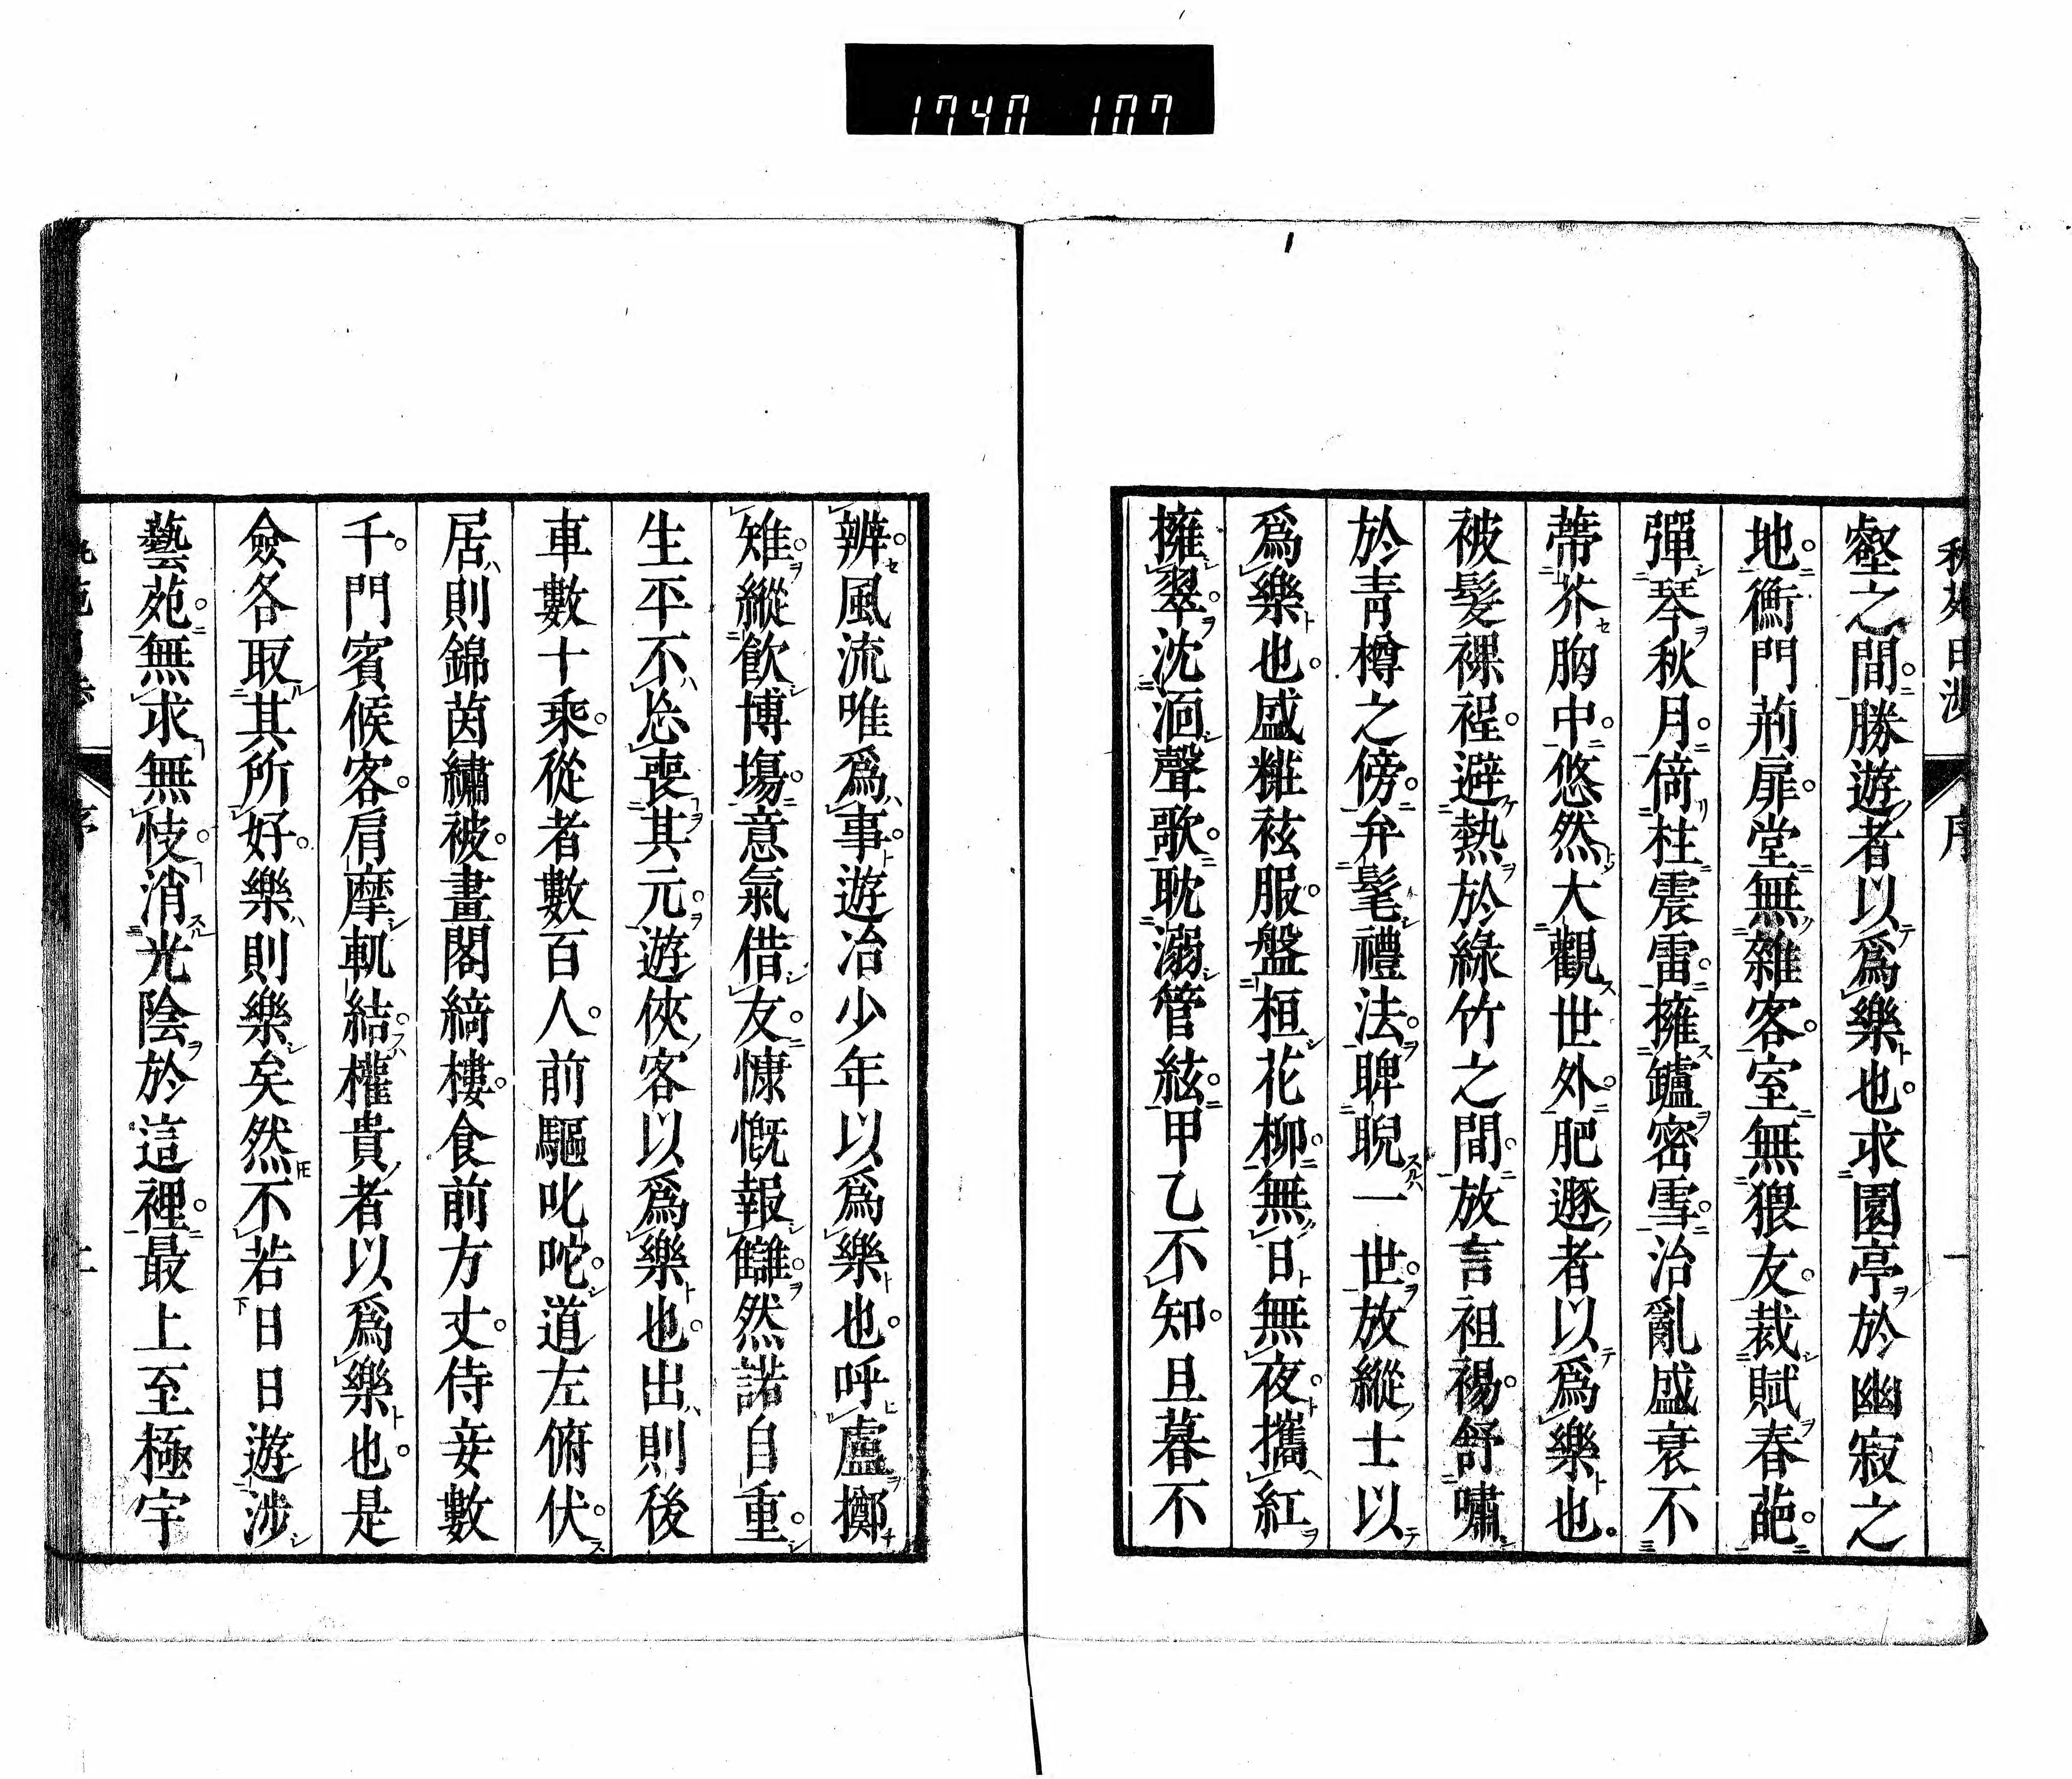 1740 107
壑之間勝遊者以爲樂也求園亭於幽寂之
地衡門荊扉堂無雜客室無猥友裁賦春葩
彈琴秋月倚柱震雷擁鑪密雪治亂盛衰不
蔕芥胸中悠然大觀世外肥遯者以爲樂也
被髮裸裎避熱於綠竹之間放言袒裼舒嘯
於青樽之傍弁髦禮法睥睨一世放縱士以
爲樂也盛糚袨服盤桓花柳無日無夜攜紅
擁翠沈洄聲歌耽溺管絃甲乙不知旦暮不
辨風流唯爲事遊冶少年以爲樂也呼盧擲
雉縱飲博塲意氣借友慷慨報讎然諾自重
生平不忩喪其元遊俠客以爲樂也出則後
車數十乘從者數百人前驅叱咜道左俯伏
居則錦茵繡被畫閣綺樓食前方丈侍妾數
千門賓候客肩摩軌結權貴者以爲樂也是
僉各取其所好樂則樂矣然不若日日遊涉
藝苑無求無忮消光陰於這裡最上至極宇
序